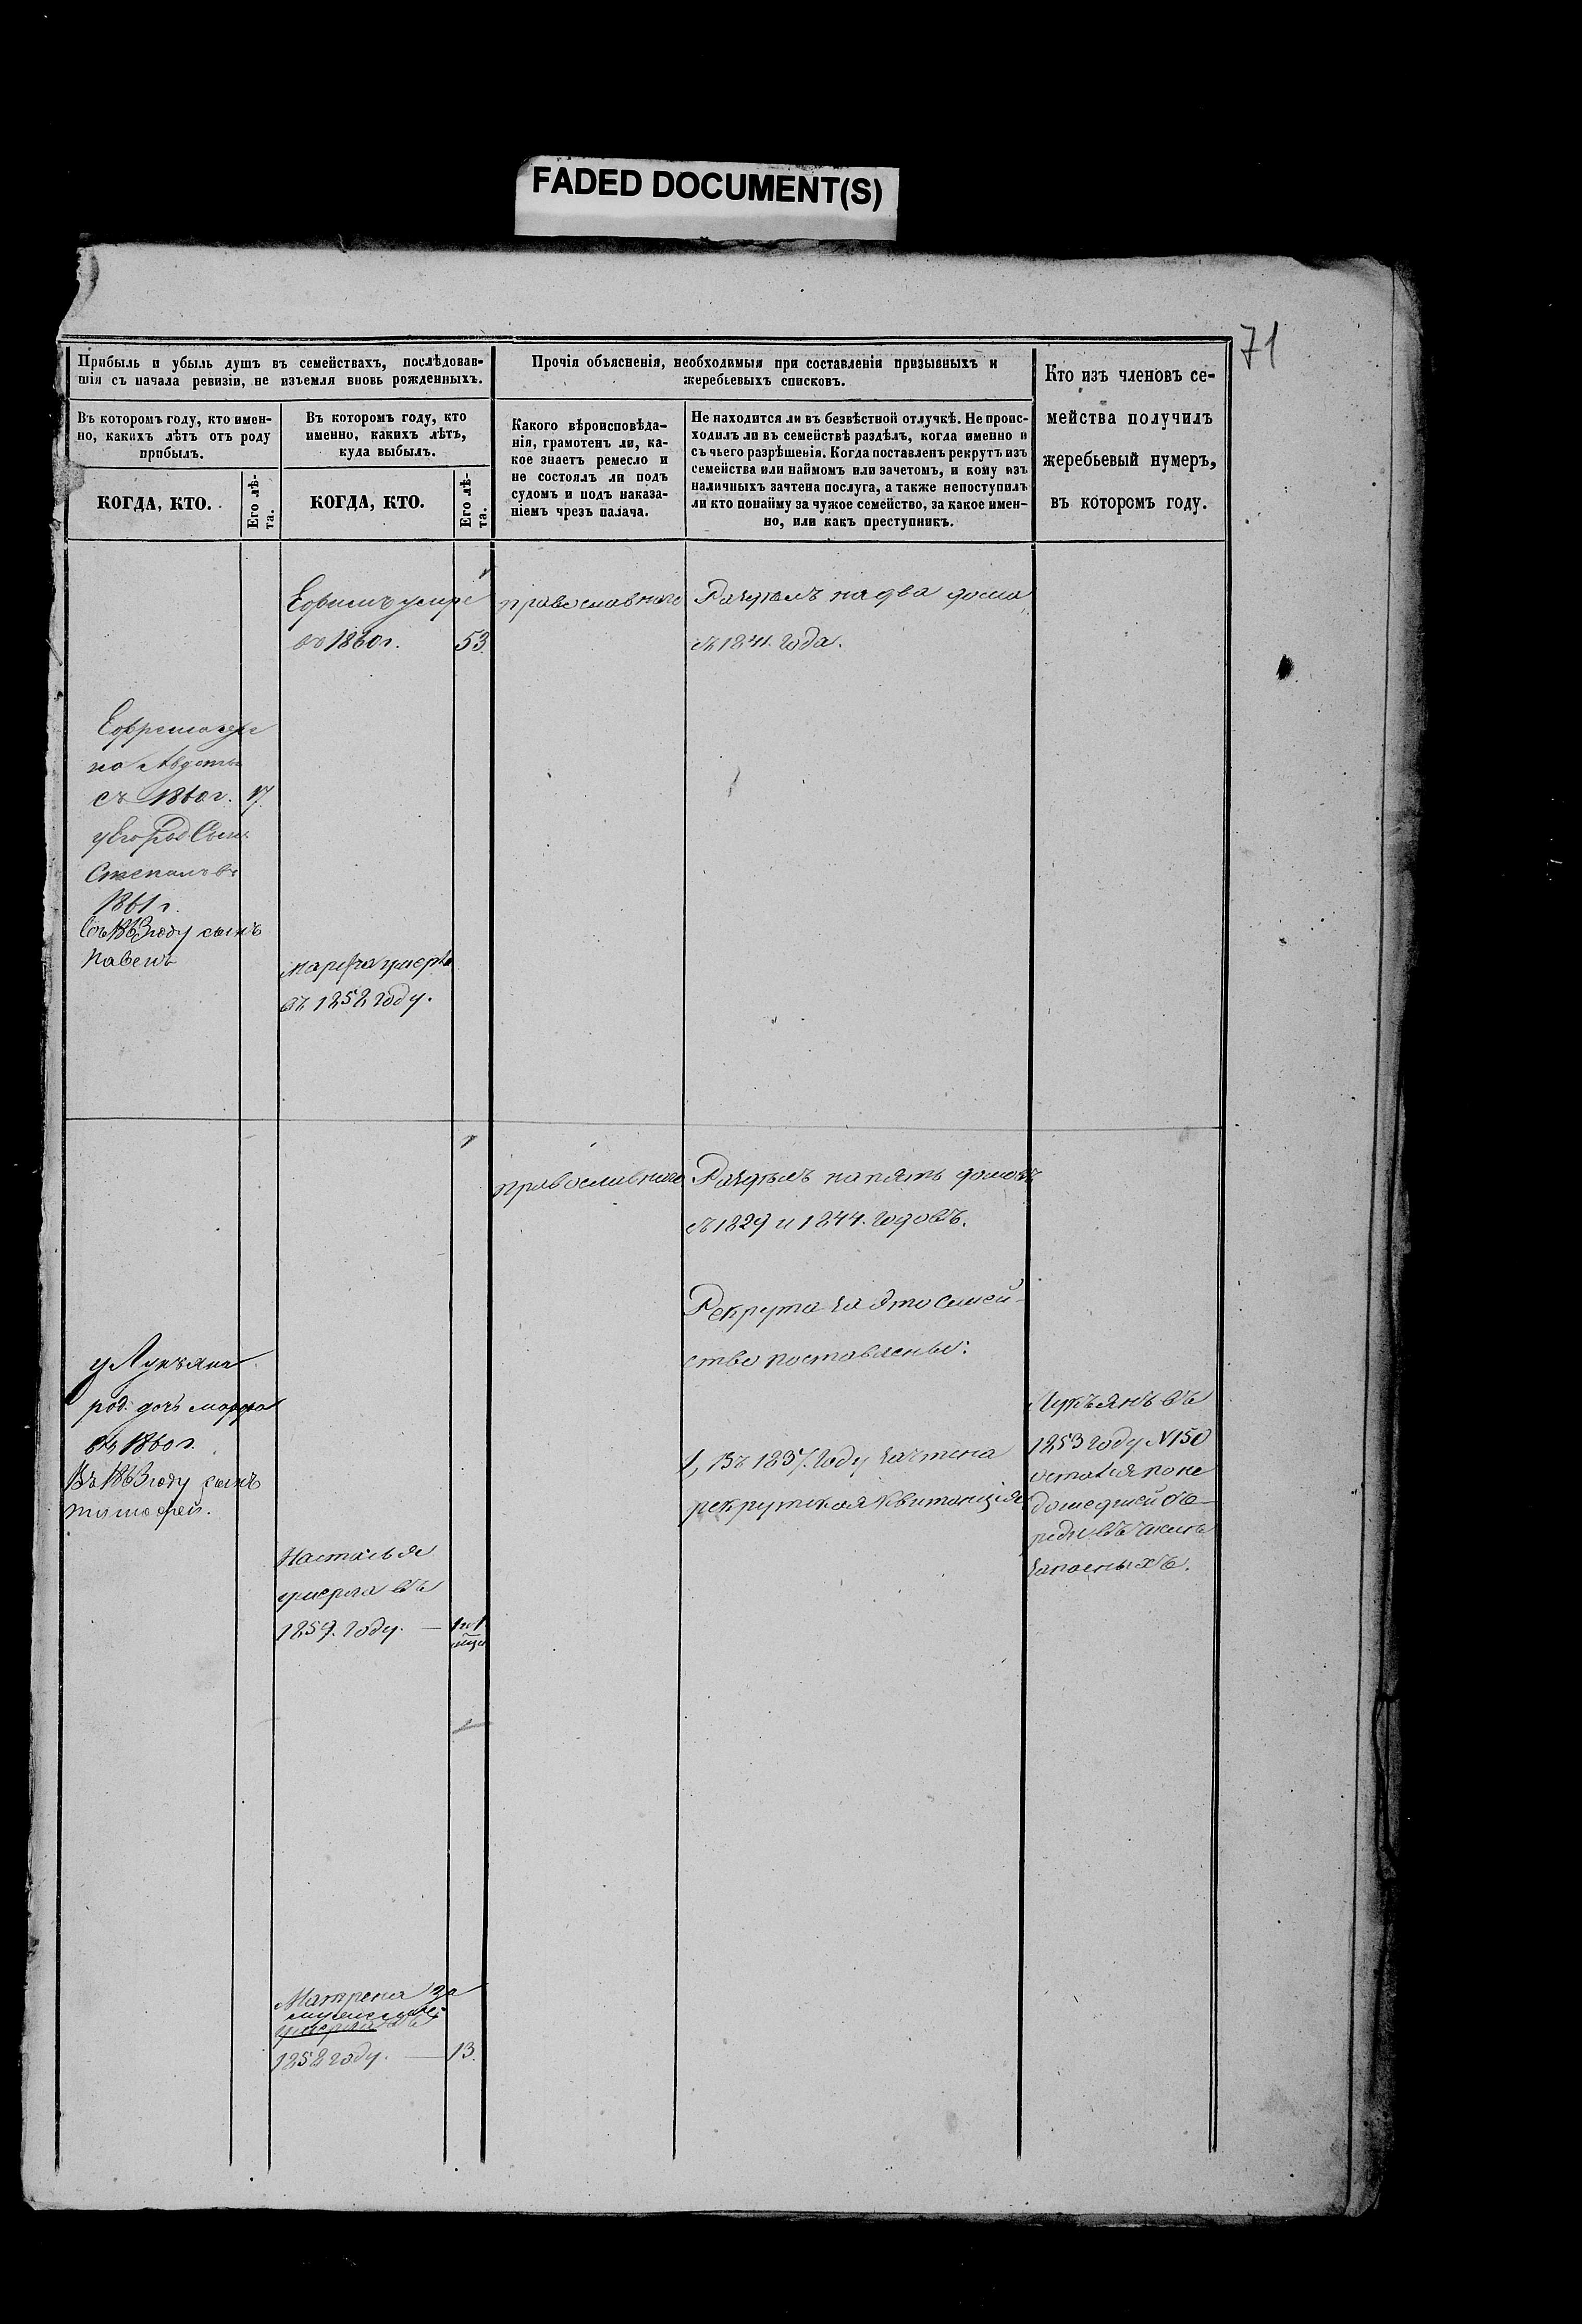 FADED DOCUMENT(S)
71
Прибыль и убыль душъ въ семействахъ, послѣдовав-
шія съ начала ревизіи, не изъемля вновь рожденныхъ.
Прочія объясненія, необходимыя при составленіи призывныхъ и
жеребьевыхъ списковъ.
Кто изъ членовъ се-
мейства получилъ
жеребьевый нумеръ,
въ которомъ году.
Въ которомъ году, кто имен-
но, какихъ лѣтъ отъ роду
прибылъ.
Въ которомъ году, кто
именно, какихъ лѣтъ,
куда выбылъ.
Какого вѣроисповѣда-
нія, грамотенъ ли, ка-
кое знаетъ ремесло и
не состоялъ ли подъ
судомъ и подъ наказа-
ніемъ чрезъ палача.
Не находится ли въ безвѣстной отлучкѣ. Не проис-
ходилъ ли въ семействѣ раздѣлъ, когда именно и
съ чьего разрѣшенія. Когда поставленъ рекрутъ изъ
семейства или наймомъ или зачетомъ, и кому изъ
наличныхъ зачтена послуга, а также непоступилъ
ли кто понайму за чужое семейство, за какое имен-
но, или какъ преступникъ.
КОГДА, КТО.
Его лѣ-
та.
КОГДА, КТО.
Его лѣ-
та.
Ефимъ умре
въ 1860 г. 53.
православнаго
Раздѣлъ на два дома
съ 1841. года.
Авдотья
съ 1860 г. 17.
у Его Род Сынъ
Степанъ въ
1861 г.
Въ 1863 году сынъ
Павелъ
Марфа умерла
въ 1858 году.
православнаго
Раздѣлъ на пять домовъ
съ 1829 и 1844. годовъ.
Рекрута за это семей-
ство поставлены:
1, Въ 1837. году зачтена
рекрутская квитанція
у Лукьяна
род. дочь марфа
въ 1860 г.
Въ 1863 году сынъ
тимофей.
Лукьянъ въ
1853 году N 150
остался по не
дошедшей оче-
реди въ числѣ
запасныхъ.
Настасья
умерла въ
1859. году. —
Матрена за
умерла въ
1858 году. — 13.